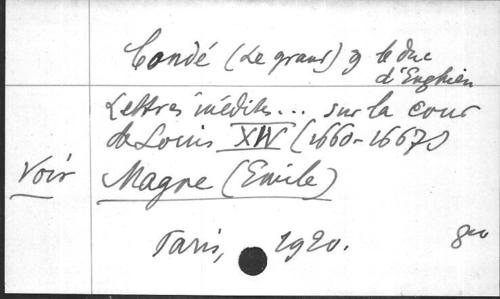 Condé (Le grand) & le duc
d'Enghien
Lettres inédites... sur la cour
de Louis XIV (1660-1667)
Voir Magne (Emile)
Paris, 1920. 8vo